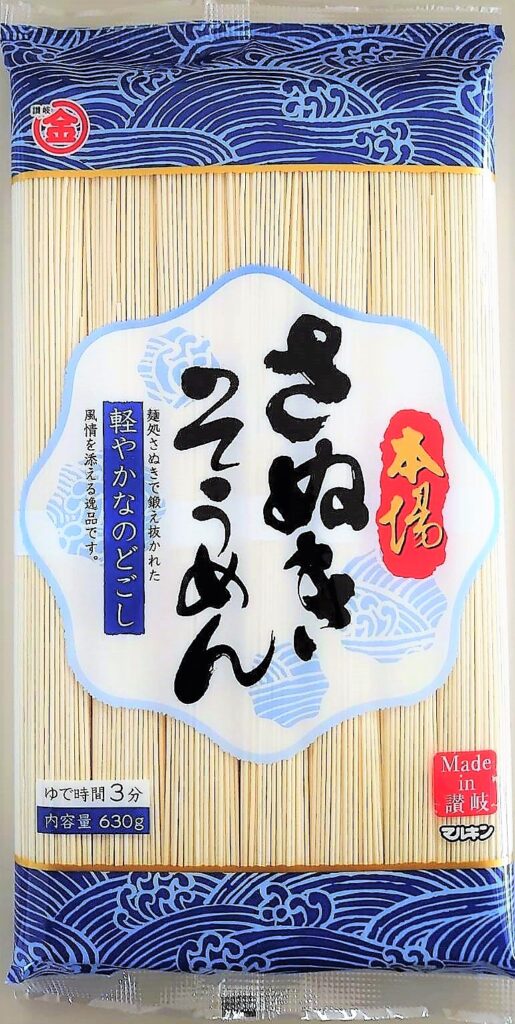 讃岐
金
本場
さぬき
そうめん
麺処さぬきで鍛え抜かれた
軽やかなのどごし
風情を添える逸品です。
ゆで時間3分
内容量 630g
Made
in
讃岐
マルキン